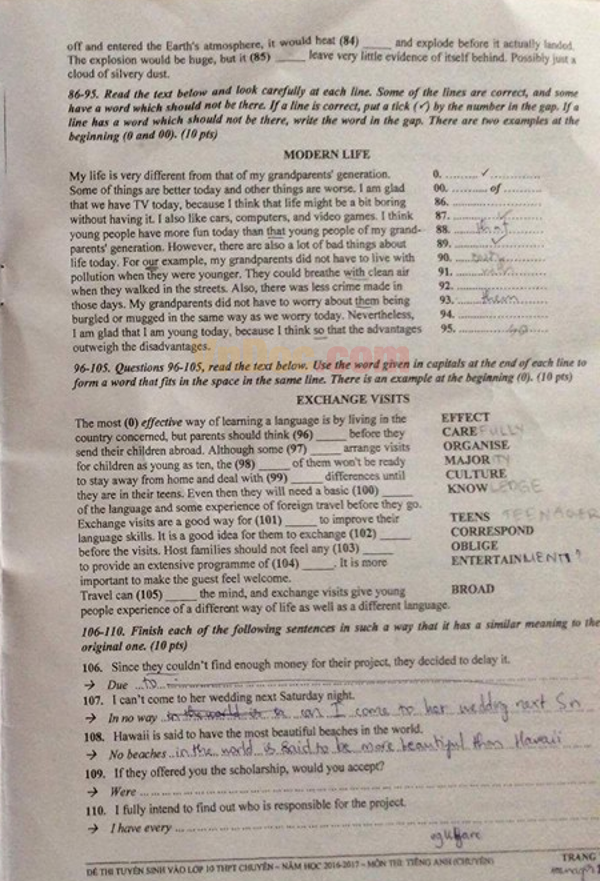 off and entered the Earth's atmosphere, it would heat (84) _____ and explode before it actually landed.
The explosion would be huge, but it (85) _____ leave very little evidence of itself behind. Possibly just a
cloud of silvery dust.
86-95. Read the text below and look carefully at each line. Some of the lines are correct, and some
have a word which should not be there. If a line is correct, put a tick (✓) by the number in the gap. If a
line has a word which should not be there, write the word in the gap. There are two examples at the
beginning (0 and 00). (10 pts)
MODERN LIFE
My life is very different from that of my grandparents' generation. 0. .......... ✓ ..........
Some of things are better today and other things are worse. I am glad 00. .......... of ..........
that we have TV today, because I think that life might be a bit boring 86. ....................
without having it. I also like cars, computers, and video games. I think 87. .......... ✓ ..........
young people have more fun today than that young people of my grand- 88. .......... that ..........
parents' generation. However, there are also a lot of bad things about 89. .......... ✓ ..........
life today. For our example, my grandparents did not have to live with 90. .......... our ..........
pollution when they were younger. They could breathe with clean air 91. .......... with ..........
when they walked in the streets. Also, there was less crime made in 92. ....................
those days. My grandparents did not have to worry about them being 93. .......... them ..........
burgled or mugged in the same way as we worry today. Nevertheless, 94. ....................
I am glad that I am young today, because I think so that the advantages 95. .......... so ..........
outweigh the disadvantages.
96-105. Questions 96-105, read the text below. Use the word given in capitals at the end of each line to
form a word that fits in the space in the same line. There is an example at the beginning (0). (10 pts)
EXCHANGE VISITS
The most (0) effective way of learning a language is by living in the EFFECT
country concerned, but parents should think (96) _____ before they CAREFULLY
send their children abroad. Although some (97) _____ arrange visits ORGANISE
for children as young as ten, the (98) _____ of them won't be ready MAJORITY
to stay away from home and deal with (99) _____ differences until CULTURE
they are in their teens. Even then they will need a basic (100) _____ KNOWLEDGE
of the language and some experience of foreign travel before they go.
Exchange visits are a good way for (101) _____ to improve their TEENS TEENAGER
language skills. It is a good idea for them to exchange (102) _____ CORRESPOND
before the visits. Host families should not feel any (103) _____ OBLIGE
to provide an extensive programme of (104) _____. It is more ENTERTAINMENT?
important to make the guest feel welcome.
Travel can (105) _____ the mind, and exchange visits give young BROAD
people experience of a different way of life as well as a different language.
106-110. Finish each of the following sentences in such a way that it has a similar meaning to the
original one. (10 pts)
106. Since they couldn't find enough money for their project, they decided to delay it.
→ Due to ....................
107. I can't come to her wedding next Saturday night.
→ In no way can I come to her wedding next Sn
108. Hawaii is said to have the most beautiful beaches in the world.
→ No beaches in the world is said to be more beautiful than Hawaii
109. If they offered you the scholarship, would you accept?
→ Were ....................
110. I fully intend to find out who is responsible for the project.
→ I have every ....................
ĐỀ THI TUYỂN SINH VÀO LỚP 10 THPT CHUYÊN – NĂM HỌC 2016-2017 – MÔN THI: TIẾNG ANH (CHUYÊN) TRANG